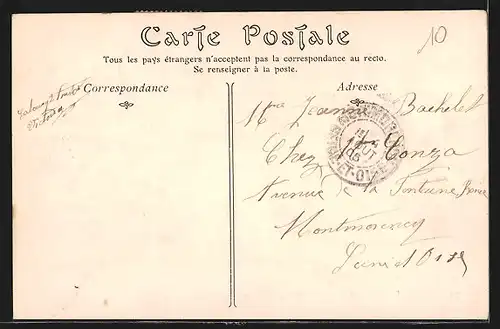 Carte Postale
Tous les pays étrangers n'acceptent pas la correspondance au recto.
Se renseigner à la poste.
10
Correspondance
Adresse
Jeanne Bachelet
Chez Gonza
Avenue de la Fontaine
Montmorency
Seine et Oise